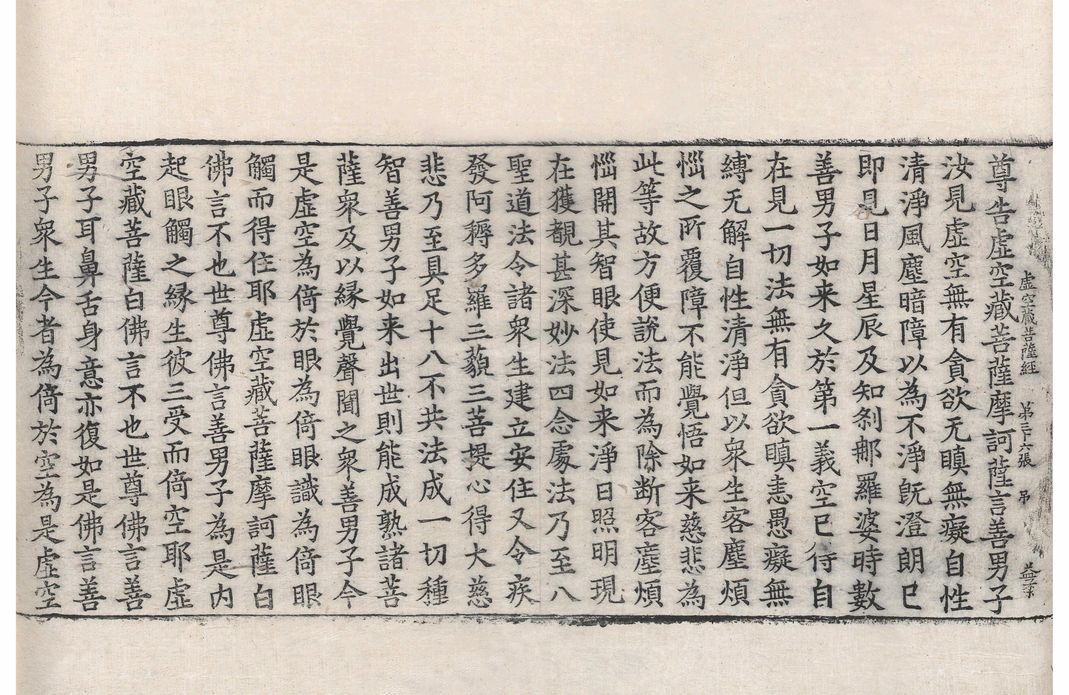 虛空藏菩薩經　第　六張　弔
尊告虛空藏菩薩摩訶薩言善男子
汝見虛空無有貪欲无瞋無癡自性
清淨風塵暗障以為不淨旣澄朗已
即見日月星辰及知剎那羅婆時數
善男子如来久於第一義空已得自
在見一切法無有貪欲瞋恚愚癡無
縛无解自性清淨但以衆生客塵煩
惱之所覆障不能覺悟如来慈悲為
此等故方便說法而為除断客塵煩
惱開其智眼使見如来淨日照明現
在獲觀甚深妙法四念處法乃至八
聖道法令諸衆生建立安住又令疾
發阿耨多羅三藐三菩提心得大慈
悲乃至具足十八不共法成一切種
智善男子如来出世則能成熟諸菩
薩衆及以緣覺聲聞之衆善男子今
是虛空為倚於眼為倚眼識為倚眼
觸而得住耶虛空藏菩薩摩訶薩白
佛言不也世尊佛言善男子為是内
起眼觸之緣生彼三受而倚空耶虛
空藏菩薩白佛言不也世尊佛言善
男子耳鼻舌身意亦復如是佛言善
男子衆生今者為倚於空為是虛空